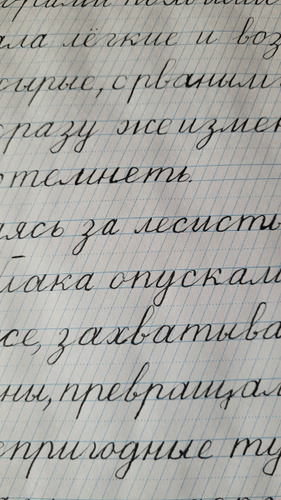 ала лёгкие и воз
сырые, с рваным
разу же измен
отемнеть.
ясь за лесисты
лака опускали
се, захватыва
ны, превращал
епригодные ту